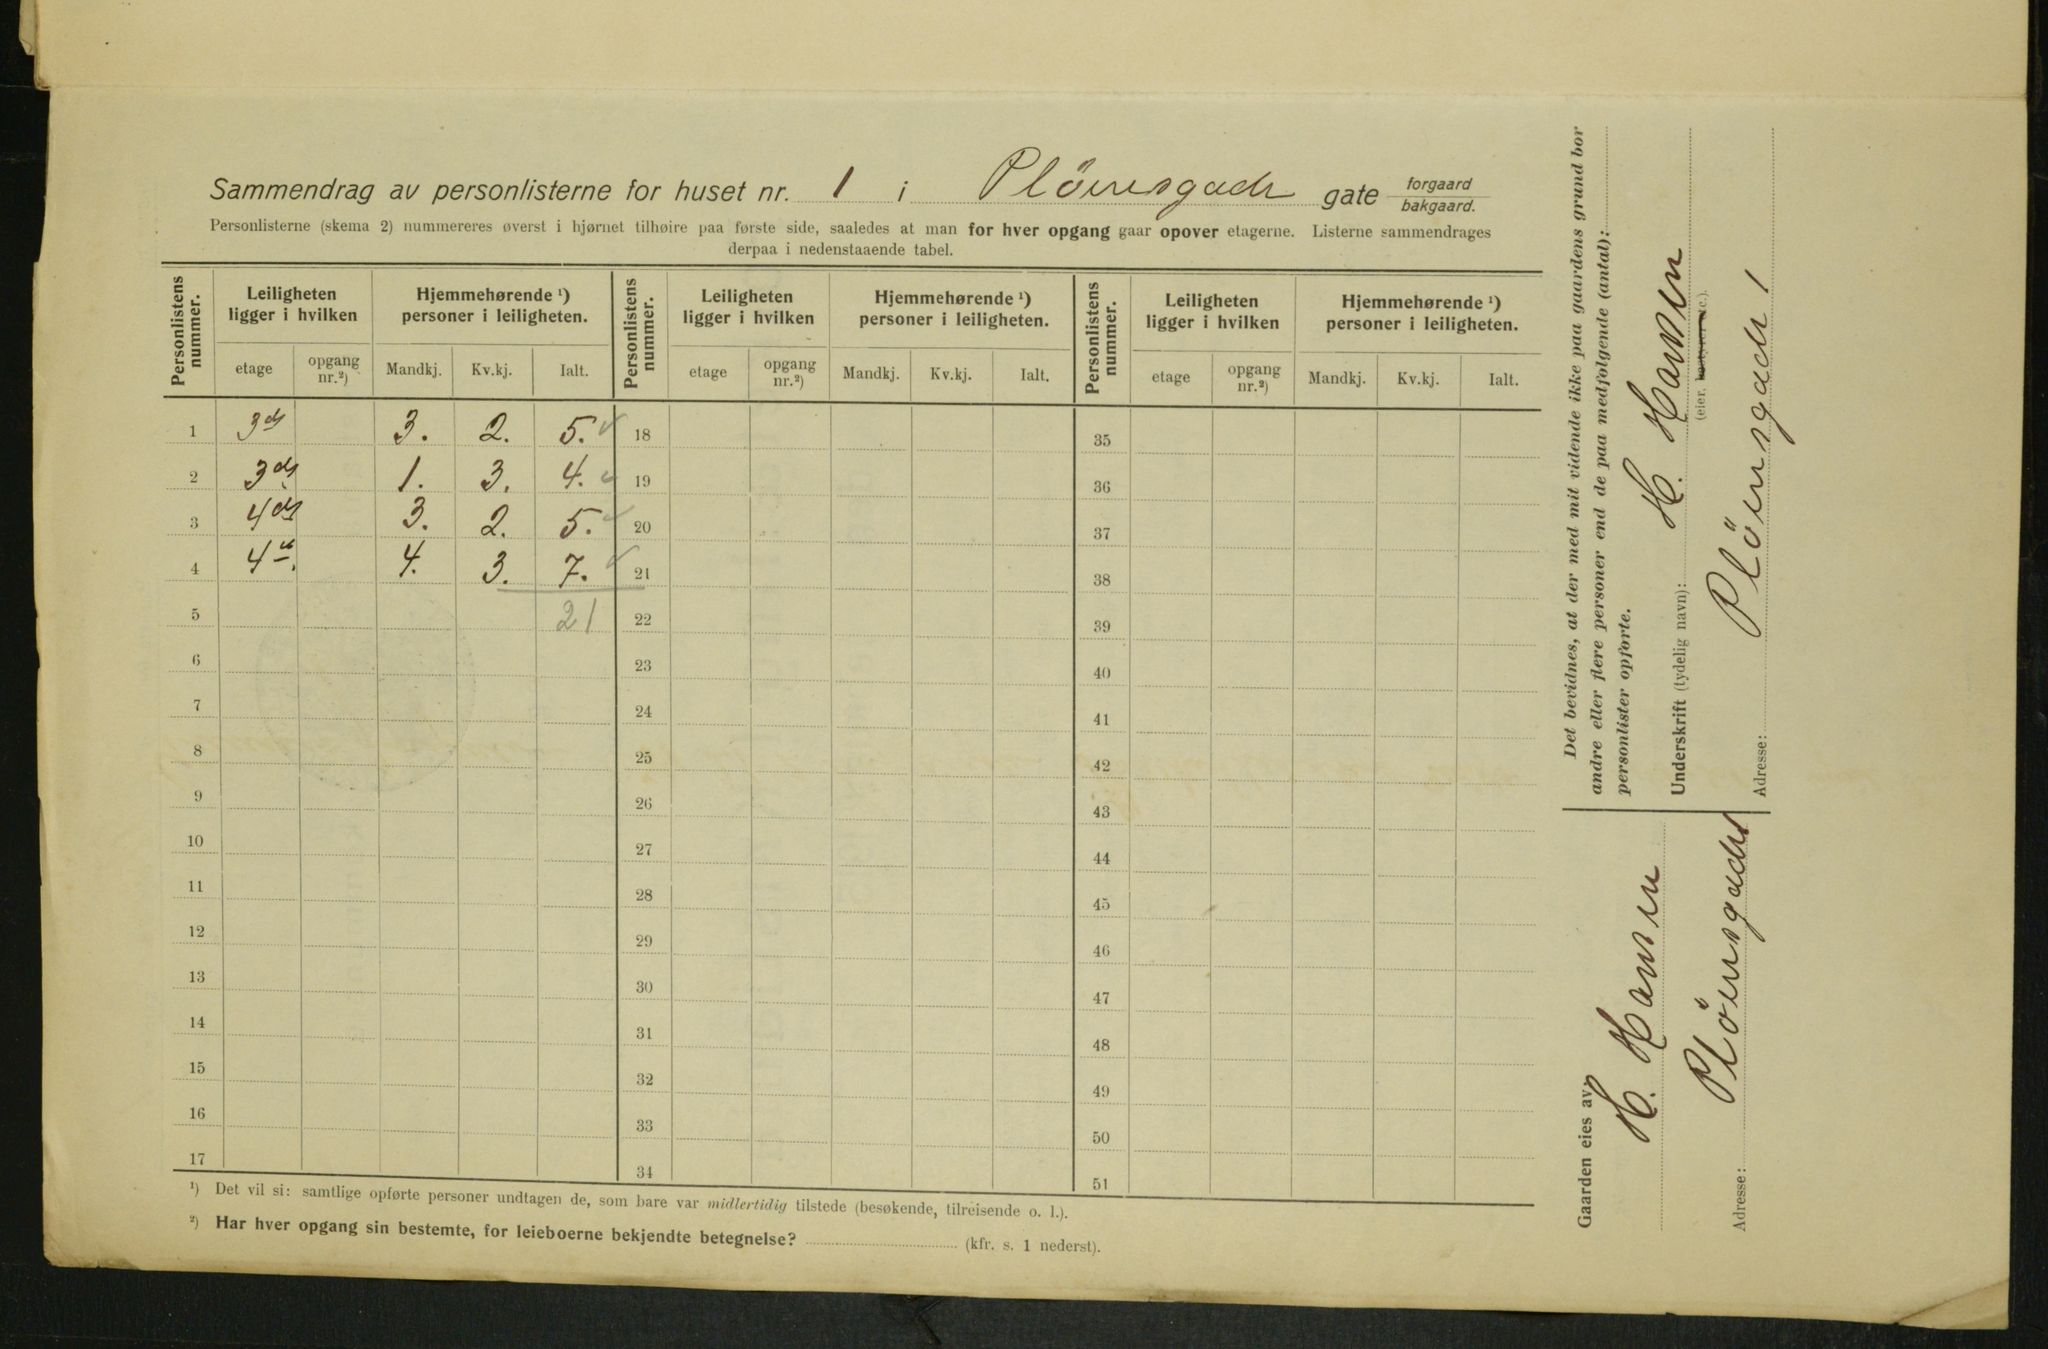 Sammendrag av personlisterne for huset nr. 1 i Plöensgade gate forgaard bakgaard.
Personlisterne (skema 2) nummereres øverst i hjørnet tilhøire paa første side, saaledes at man for hver opgang gaar opover etagerne. Listerne sammendrages
derpaa i nedenstaaende tabel.
Personlistens nummer. Leiligheten ligger i hvilken Hjemmehørende ¹) personer i leiligheten. Personlistens nummer. Leiligheten ligger i hvilken Hjemmehørende ¹) personer i leiligheten. Personlistens nummer. Leiligheten ligger i hvilken Hjemmehørende ¹) personer i leiligheten.
etage opgang nr.²) Mandkj. Kv.kj. Ialt. etage opgang nr.²) Mandkj. Kv.kj. Ialt. etage opgang nr.²) Mandkj. Kv.kj. Ialt.
1 3 3. 2. 5. 18 35
2 3 1. 3. 4. 19 36
3 4 3. 2. 5. 20 37
4 4 4. 3. 7. 21 38
5 21 22 39
6 23 40
7 24 41
8 25 42
9 26 43
10 27 44
11 28 45
12 29 46
13 30 47
14 31 48
15 32 49
16 33 50
17 34 51
¹) Det vil si: samtlige opførte personer undtagen de, som bare var midlertidig tilstede (besøkende, tilreisende o. l.).
²) Har hver opgang sin bestemte, for leieboerne bekjendte betegnelse? (kfr. s. 1 nederst).
Det bevidnes, at der med mit vidende ikke paa gaardens grund bor
andre eller flere personer end de paa medfølgende (antal):
personlister opførte.
Underskrift (tydelig navn): H. Hansen
(eier, bestyrer etc.).
Adresse: Plöensgade 1
Gaarden eies av: H. Hansen
Adresse: Plöensgade 1